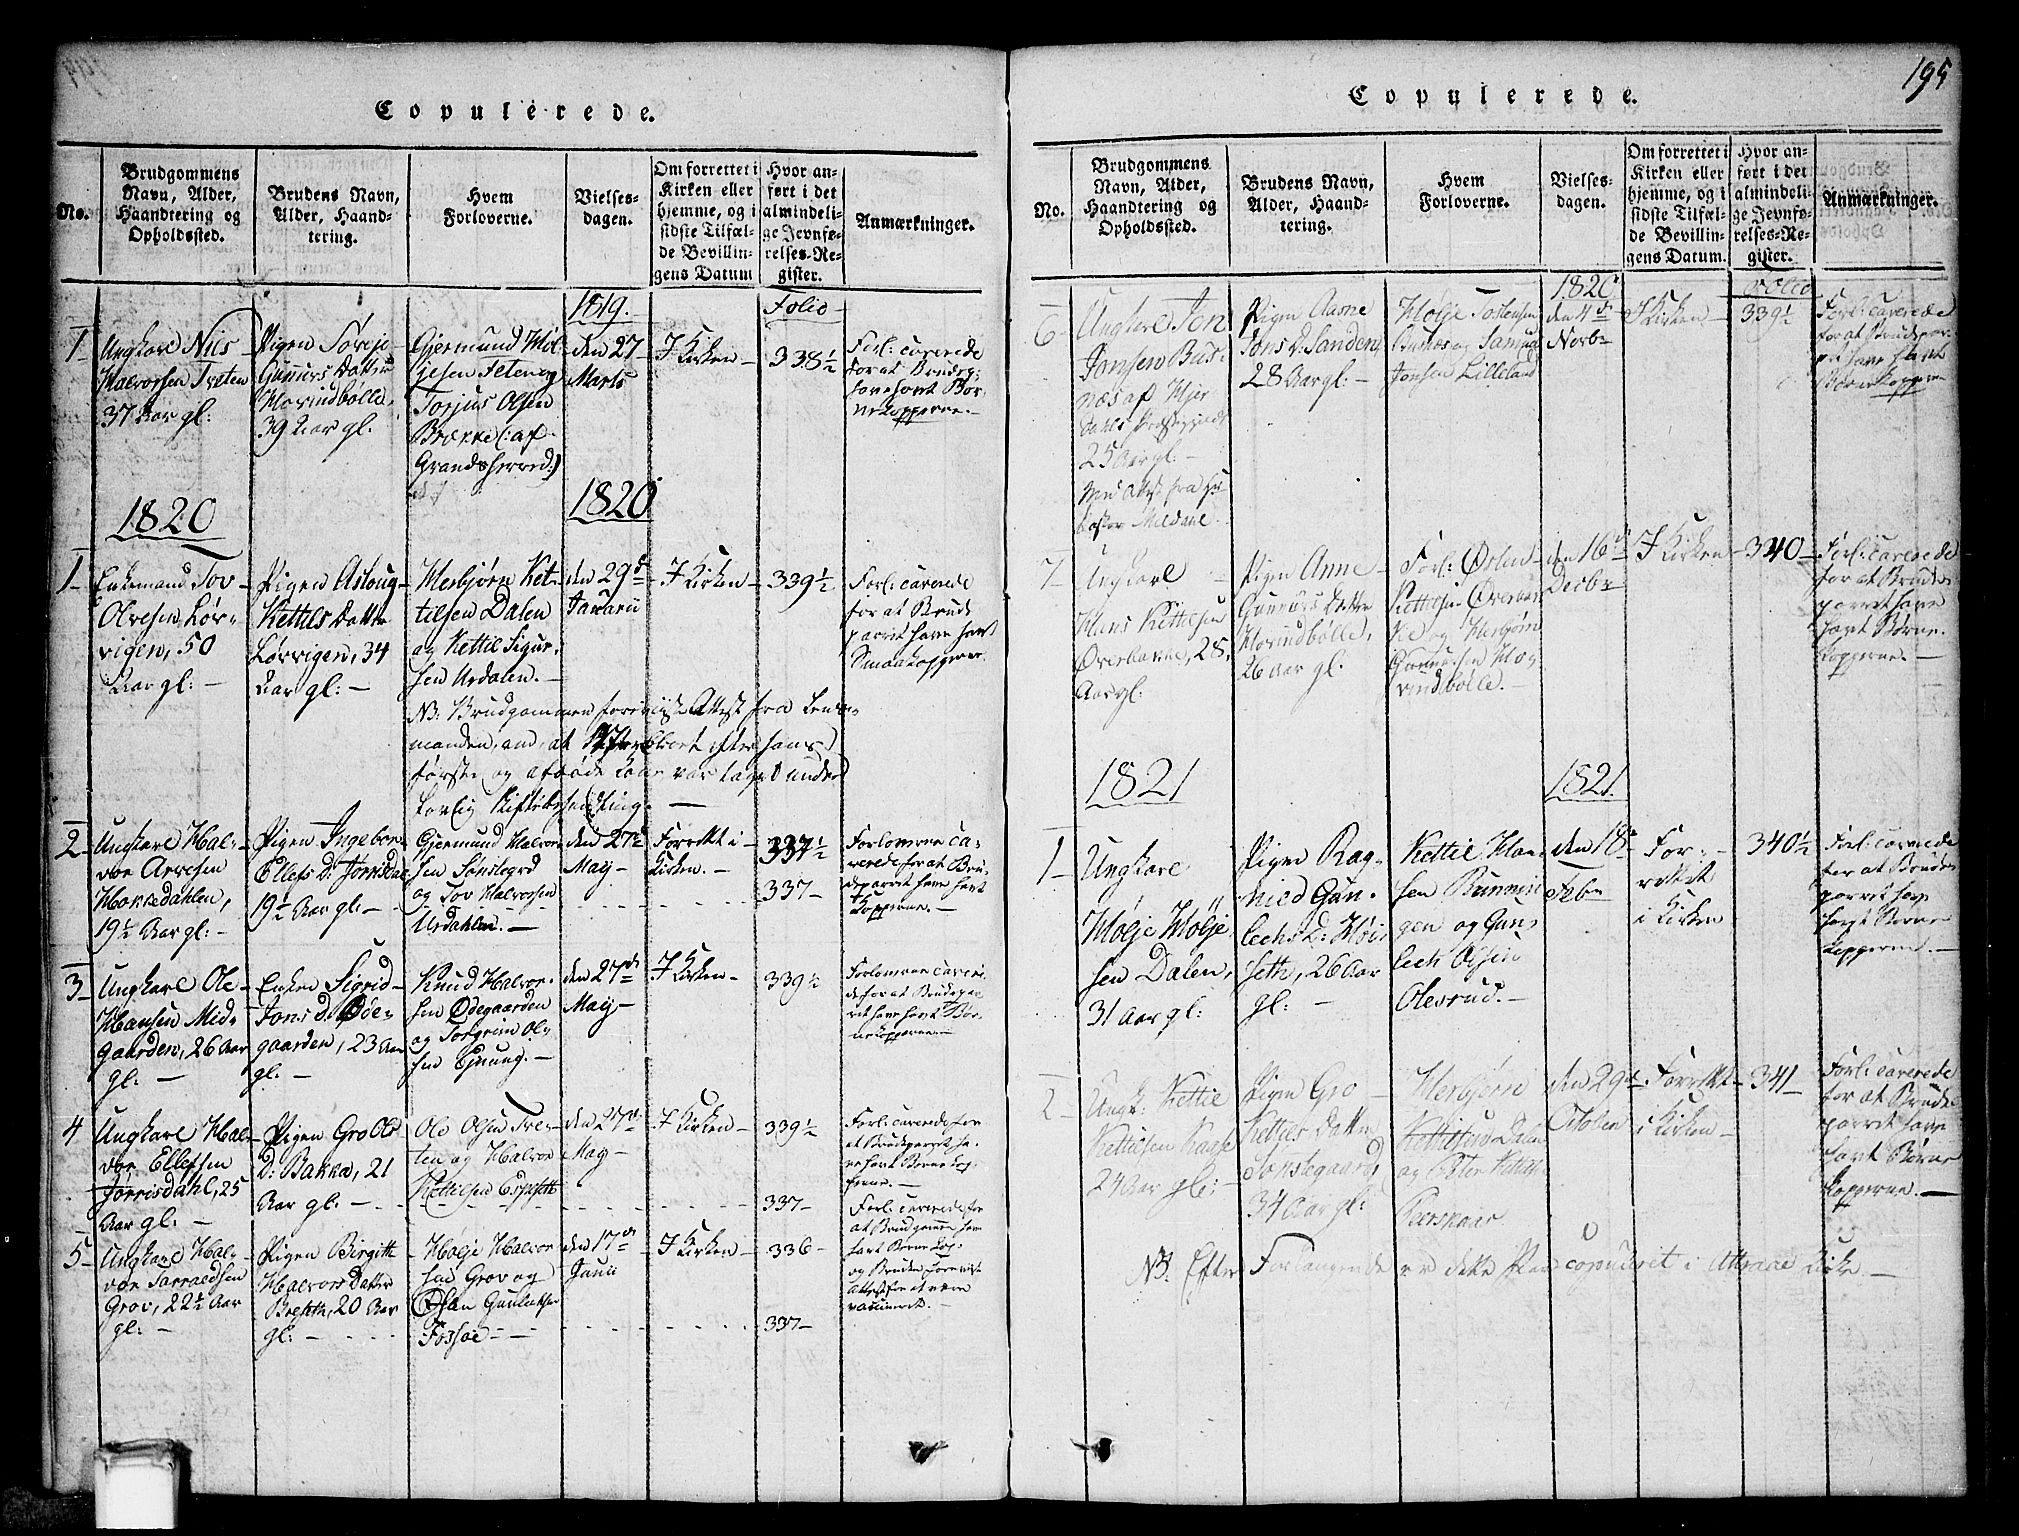 195
Copulerede.
No.
Brudgommens
Navn, Alder,
Haandtering og
Opholdssted.
Brudens Navn,
Alder, Haand-
tering.
Hvem
Forloverne.
Vielses-
dagen.
Om forrettet i
Kirken eller
hjemme, og i
sidste Tilfæl-
de Bevillin-
gens Datum
Hvor an-
ført i det
almindeli-
ge Jevnfø-
relses-Re-
gister.
Anmærkninger.
1819.
Folio
1
Ungkarl Nils
Halvorsen Treten
37 Aar gl:
Pigen
Gunnurs Datter
Hovindbølle,
39 Aar gl.
Gjermund Høl-
jesen Teten og
Torjus Olsen
Brække (: af
Grandsherred:)
den 27
Marts
I Kirken -
338½
Forl: caverede
for at Brudep:
have havt Bør-
nekopperne. -
1820
1820
1-
Enkemand Tov
Olvesen Lør-
vigen, 50
Aar gl: -
Pigen Asloug
Kettels Datter
Lørvigen, 34
Aar gl: -
Herbjørn Ket-
tilsen Dalen
og Kettil Sigur-
sen Urdalen. -
den 29de
Januarii
I Kirken -
339½
Forl: caverede
for at Brude
parret have havt
Smaakopperne.
NB. Brudgommen foreviiste Attest fra Lens-
manden, om, at Skifterbrevet efter hans
første og afdøde Kone var taget under
Lovlig Skiftebehandling. -
2-
Ungkarl Hal-
vor Arvesen
Hovredahlen,
19½ Aar gl: -
Pigen Ingebor
Ellefs D: Jørrisdal
19½ Aar gl: -
Gjermund Halvor-
sen Sønstegrd
og Tov Halvorsen
Urdahlen. -
den 27de
May -
Forrettet i
Kirken. -
337½
337 -
Forloverne ca-
verede for at Bru-
deparret have havt
Kopperne. -
3-
Ungkarl Ole
Hansen Mid-
gaarden, 26 Aar
gl: -
Enken Sigrid
Jons D. Øde-
gaarden, 23 Aar
gl: -
Knud Halvor-
sen Ødegaarden
og Torgrim Ol-
sen Gjnung. -
den 27de
May -
I Kirken -
339½
Forloverne cavere-
de for at Brudepar-
ret have havt Bør-
nekopperne -
4
Ungkarl Hal-
vor Ellefsen
Jørrisdahl, 25
Aar gl: -
Pigen Gro Ols
D: Bakka, 21
Aar gl: -
Ole Olsen Tre-
ten og Halvor
Kettilsen Espeseth
den 27de
May -
I Kirken -
339½
337 -
Forl: caverede for
at Brudeparret ha-
ve havt Børnekop-
perne. -
5-
Ungkarl Hal-
vor Tarraldsen
Grov, 22½ Aar
gl: -
Pigen Birgitte
Halvors Datter
Breseth, 20 Aar
gl: -
Hølje Halvor
sen Grov og
Gunleiksen
Fossøe -
den 17de
Junii
I Kirken -
336 -
337 -
Forl: caverede for
at Brudgommen have
havt Børnekop:
og Bruden foreviist
Attest for at være
vaccineret. -
Copulerede.
No.
Brudgommens
Navn, Alder,
Haandtering og
Opholdssted.
Brudens Navn,
Alder, Haand-
tering.
Hvem
Forloverne.
Vielses-
dagen.
Om forrettet i
Kirken eller
hjemme, og i
sidste Tilfæl-
de Bevillin-
gens Datum.
Hvor an-
ført i det
almindeli-
ge Jevnfø-
relses-Re-
gister.
Anmærkninger.
1820
Folio
6
Ungkarl Jon
Jonsen Bus-
næs af Hjer
dahls Præstegjeld
25 Aar gl: -
Med Attest fra
Mildahl.
Pigen Aasne
Jons D: Sanden,
28 Aar gl: -
Hølje Tostensen
Busnæs og Samuel
Jonsen Lilleland
den 4de
Novbr
I Kirken -
339½
Forl: caverede
for at Brudepar-
ret have havt
Børnekopperne
7-
Ungkarl
Hans Kittilsen
Øverbøvine, 28,
Aar gl:
Pigen Anne
Gunnurs Datter
Hovindbølle,
26 Aar gl:
Forl: Østen
Kettilsen Øverbø
og Herbjørn
Gunnursen Ho-
vindbølle. -
den 16de
Decbr
I Kirken -
340 -
Forl: caverede
for at Brude-
parret have
havt Børne-
kopperne. -
1821
1821.
1-
Ungkarl
Hølje Hølje
sen Dalen,
31 Aar gl:
Pigen Rag-
nied Gun-
lechs D: Høi-
seth, 26 Aar
gl: -
Kettil Han-
sen Bunmin-
gen og Gun-
lech Olsen
Olesrud. -
den 18de
Febr
For-
rettet
i Kirken
340½
Forl: caverede
for at Brude
parret have
havt Børne
kopperne. -
2-
Ungk: Kettil
Kettilsen Kaase
24 Aar gl: -
Pigen Gro
Kettils Datter
Sønstegaard,
34 Aar gl:
Herbjørn
Kettilsen Dalen
og Peter Kittils
Peerskaas
den 29de
Octobr
Forrettet
i Kirken -
341 -
Forl: caverede
for at Brude
parret have
havt Børne
kopperne. -
NB. Efter Forlangende er dette Par copuleret i Attraae Kirke. -